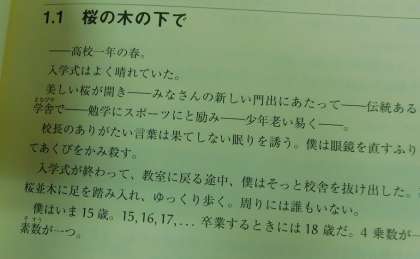 1.1 桜の木の下で
——高校一年の春。
入学式はよく晴れていた。
美しい桜が開き——みなさんの新しい門出にあたって——伝統ある
学舎で——勉学にスポーツにと励み——少年老い易く——。
校長のありがたい言葉は果てしない眠りを誘う。僕は眼鏡を直すふり
てあくびをかみ殺す。
入学式が終わって、教室に戻る途中、僕はそっと校舎を抜け出した。
桜並木に足を踏み入れ、ゆっくり歩く。周りには誰もいない。
僕はいま 15 歳。15, 16, 17, . . . 卒業するときには 18 歳だ。4 乗数が一
素数が一つ。